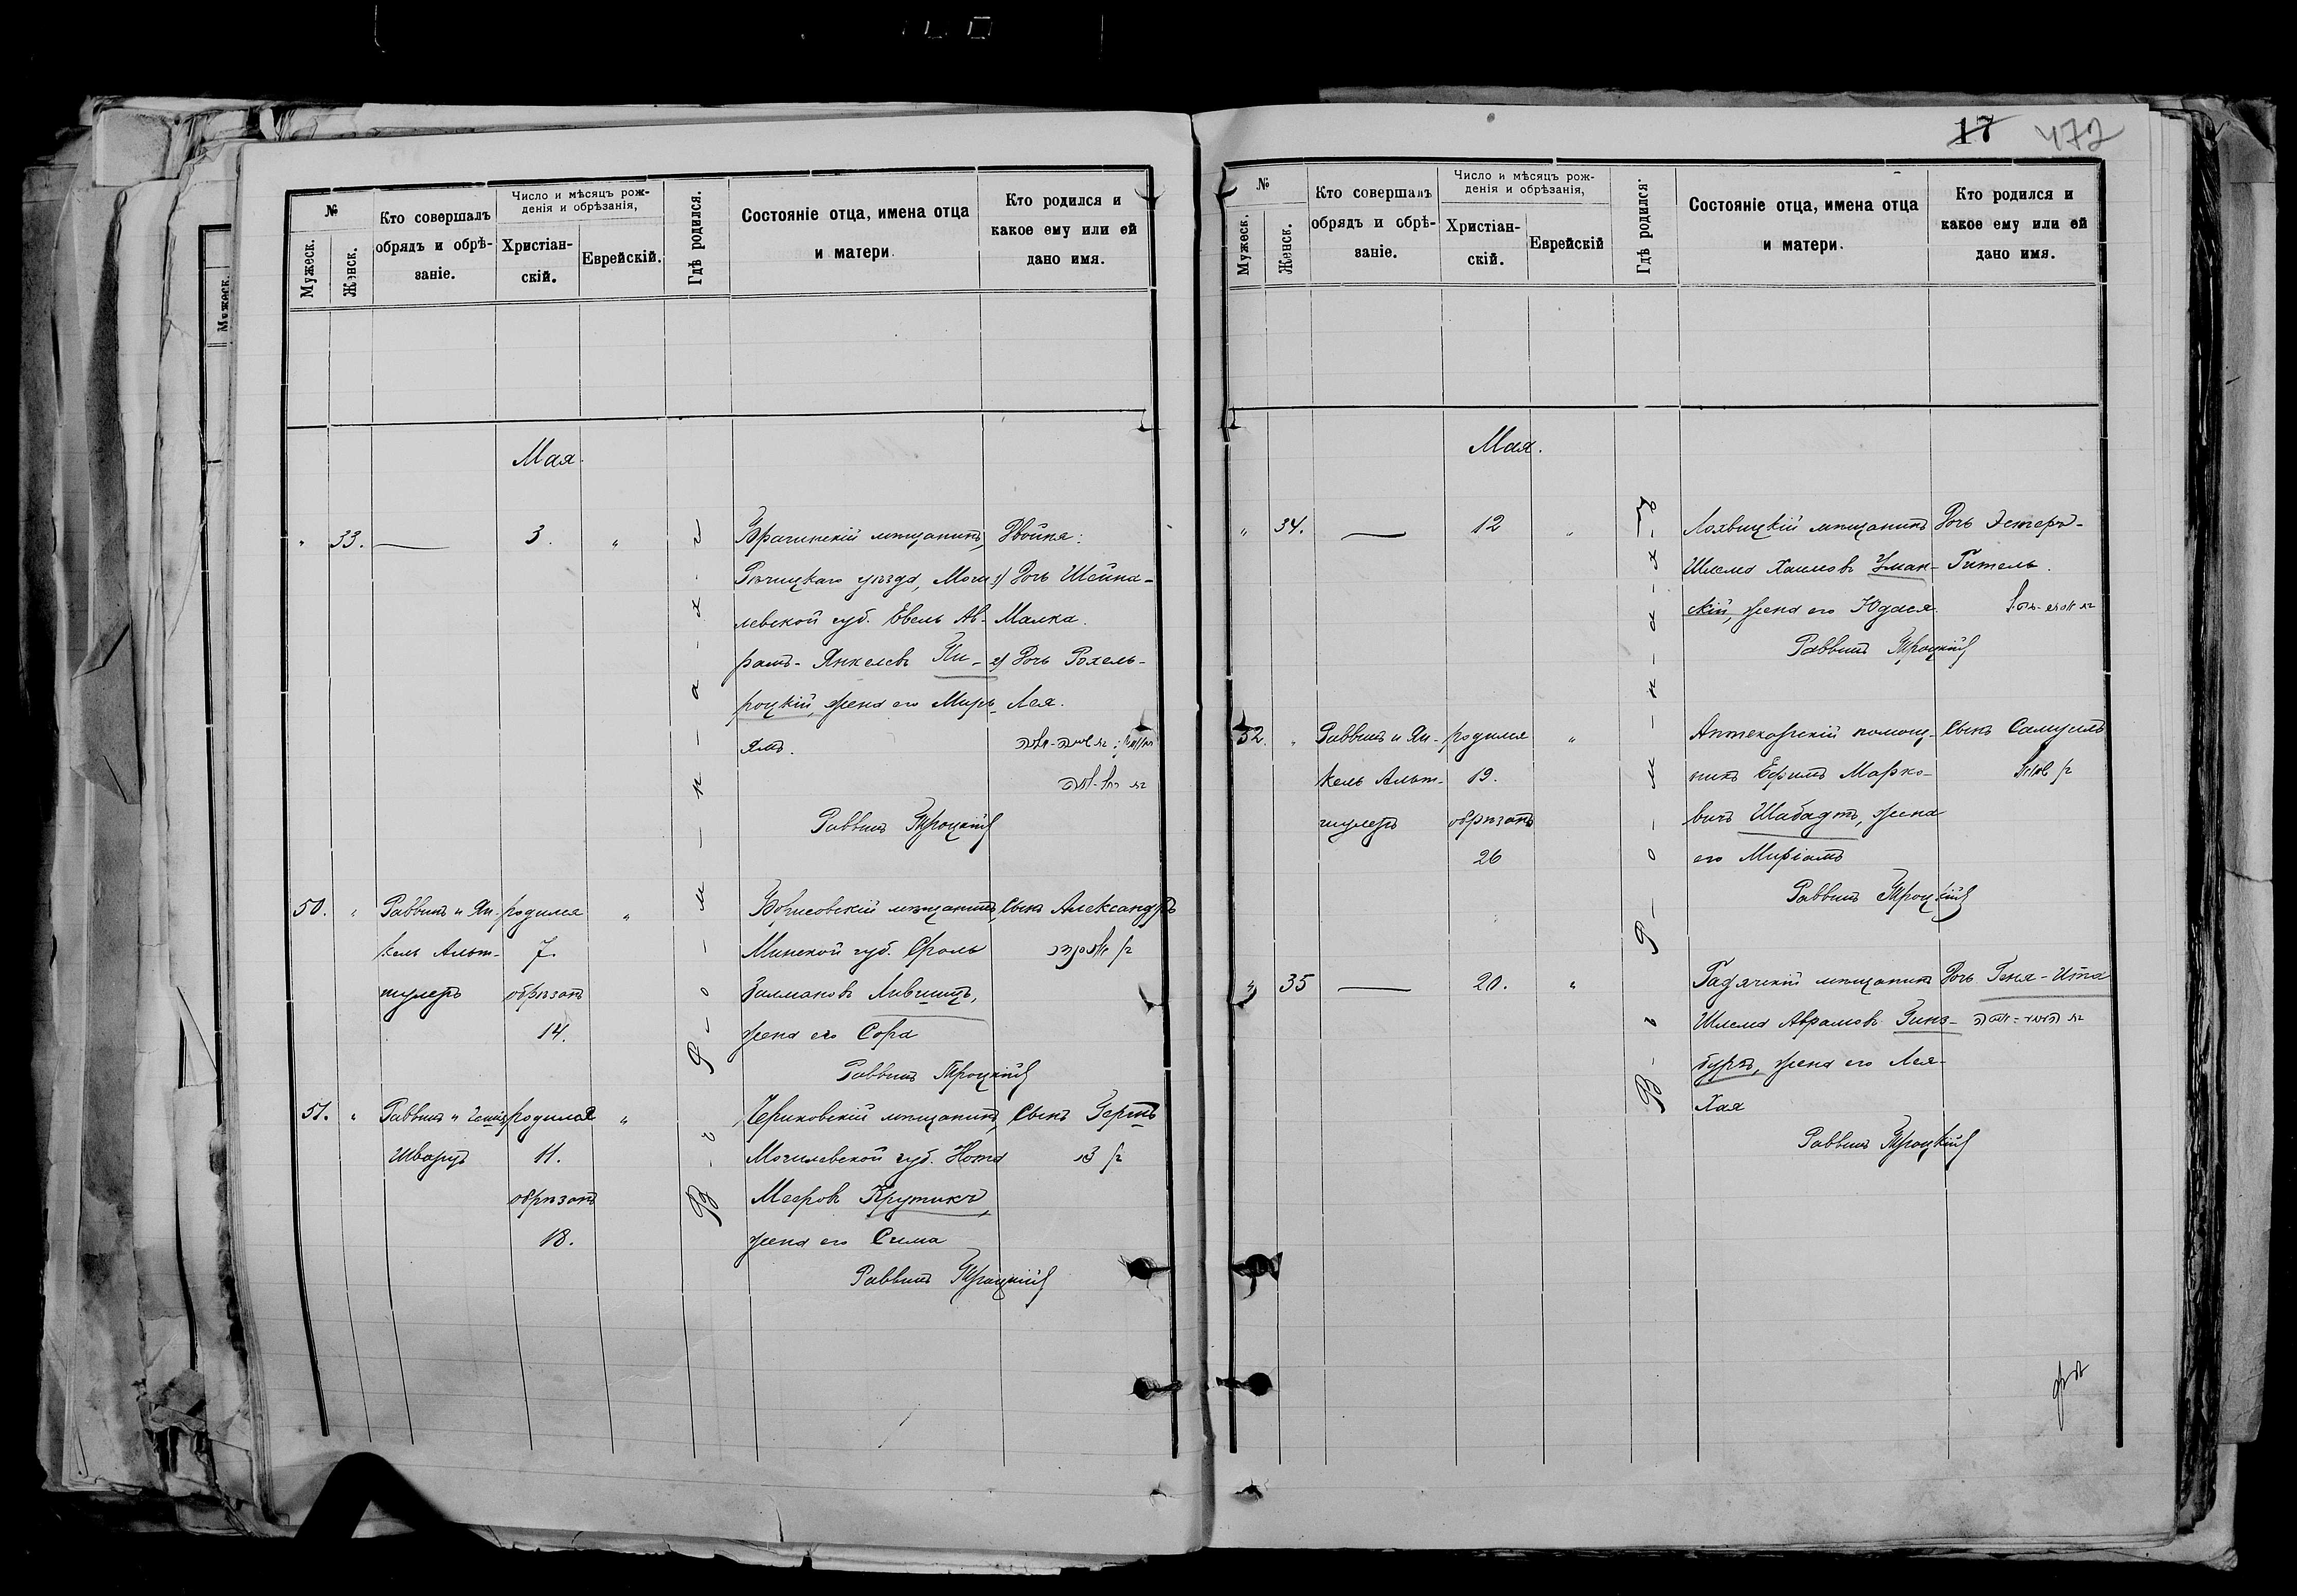 №
Мужеск.
Женск.
Кто совершалъ
обрядъ и обрѣ-
заніе.
Число и мѣсяцъ рож-
денія и обрѣзанія,
Христіан-
скій.
Еврейскій.
Гдѣ родился.
Состояніе отца, имена отца
и матери.
Кто родился и
какое ему или ей
дано имя.
Мая.
" 33. — 3. "
Брагинскій мѣщанинъ,
Рѣчицкаго уѣзда, Моги-
левской губ. Евель Ав-
рамъ-Янкелевъ Пи-
роцкій, жена его Мирь-
ямъ.
Двойня:
1) Дочь Шейна-
Малка.
2) Дочь Рохель-
Лея.
Раввинъ Троцкій
50. "
Раввинъ и Ян-
кель Альт-
шулеръ
родился
7.
обрѣзанъ
14.
"
Борисовскій мѣщанинъ,
Минской губ. Сроль
Залмановъ Лившицъ,
жена его Сора
Сынъ Александръ
Раввинъ Троцкій
51. "
Раввинъ и
Шварцъ
родился
11.
обрѣзанъ
18.
"
Чериковскій мѣщанинъ,
Могилевской губ. Нота
Мееровъ Крутикъ,
жена его Сима
Сынъ
Раввинъ Троцкій
В ъ Р о м н а х ъ
17 472
№
Мужеск.
Женск.
Кто совершалъ
обрядъ и обрѣ-
заніе.
Число и мѣсяцъ рож-
денія и обрѣзанія,
Христіан-
скій.
Еврейскій
Гдѣ родился.
Состояніе отца, имена отца
и матери.
Кто родился и
какое ему или ей
дано имя.
Мая.
" 34. — 12 "
Лохвицкій мѣщанинъ
Шлема Хаимовъ Уман-
скій, жена его Юдася
Дочь Эстеръ-
Гитель.
Раввинъ Троцкій
52. "
Раввинъ и Ян-
кель Альт-
шулеръ
родился
19.
обрѣзанъ
26
"
Аптекарскій помощ-
никъ Ефимъ Марко-
вичъ Шабадъ, жена
его Миріамъ
Сынъ Самуилъ
Раввинъ Троцкій
" 35 — 20. "
Гадячскій мѣщанинъ
Шлема Абрамовъ Гинз-
бургъ, жена его Лея-
Хая
Дочь Геня-Ита
Раввинъ Троцкій
В ъ Р о м н а х ъ